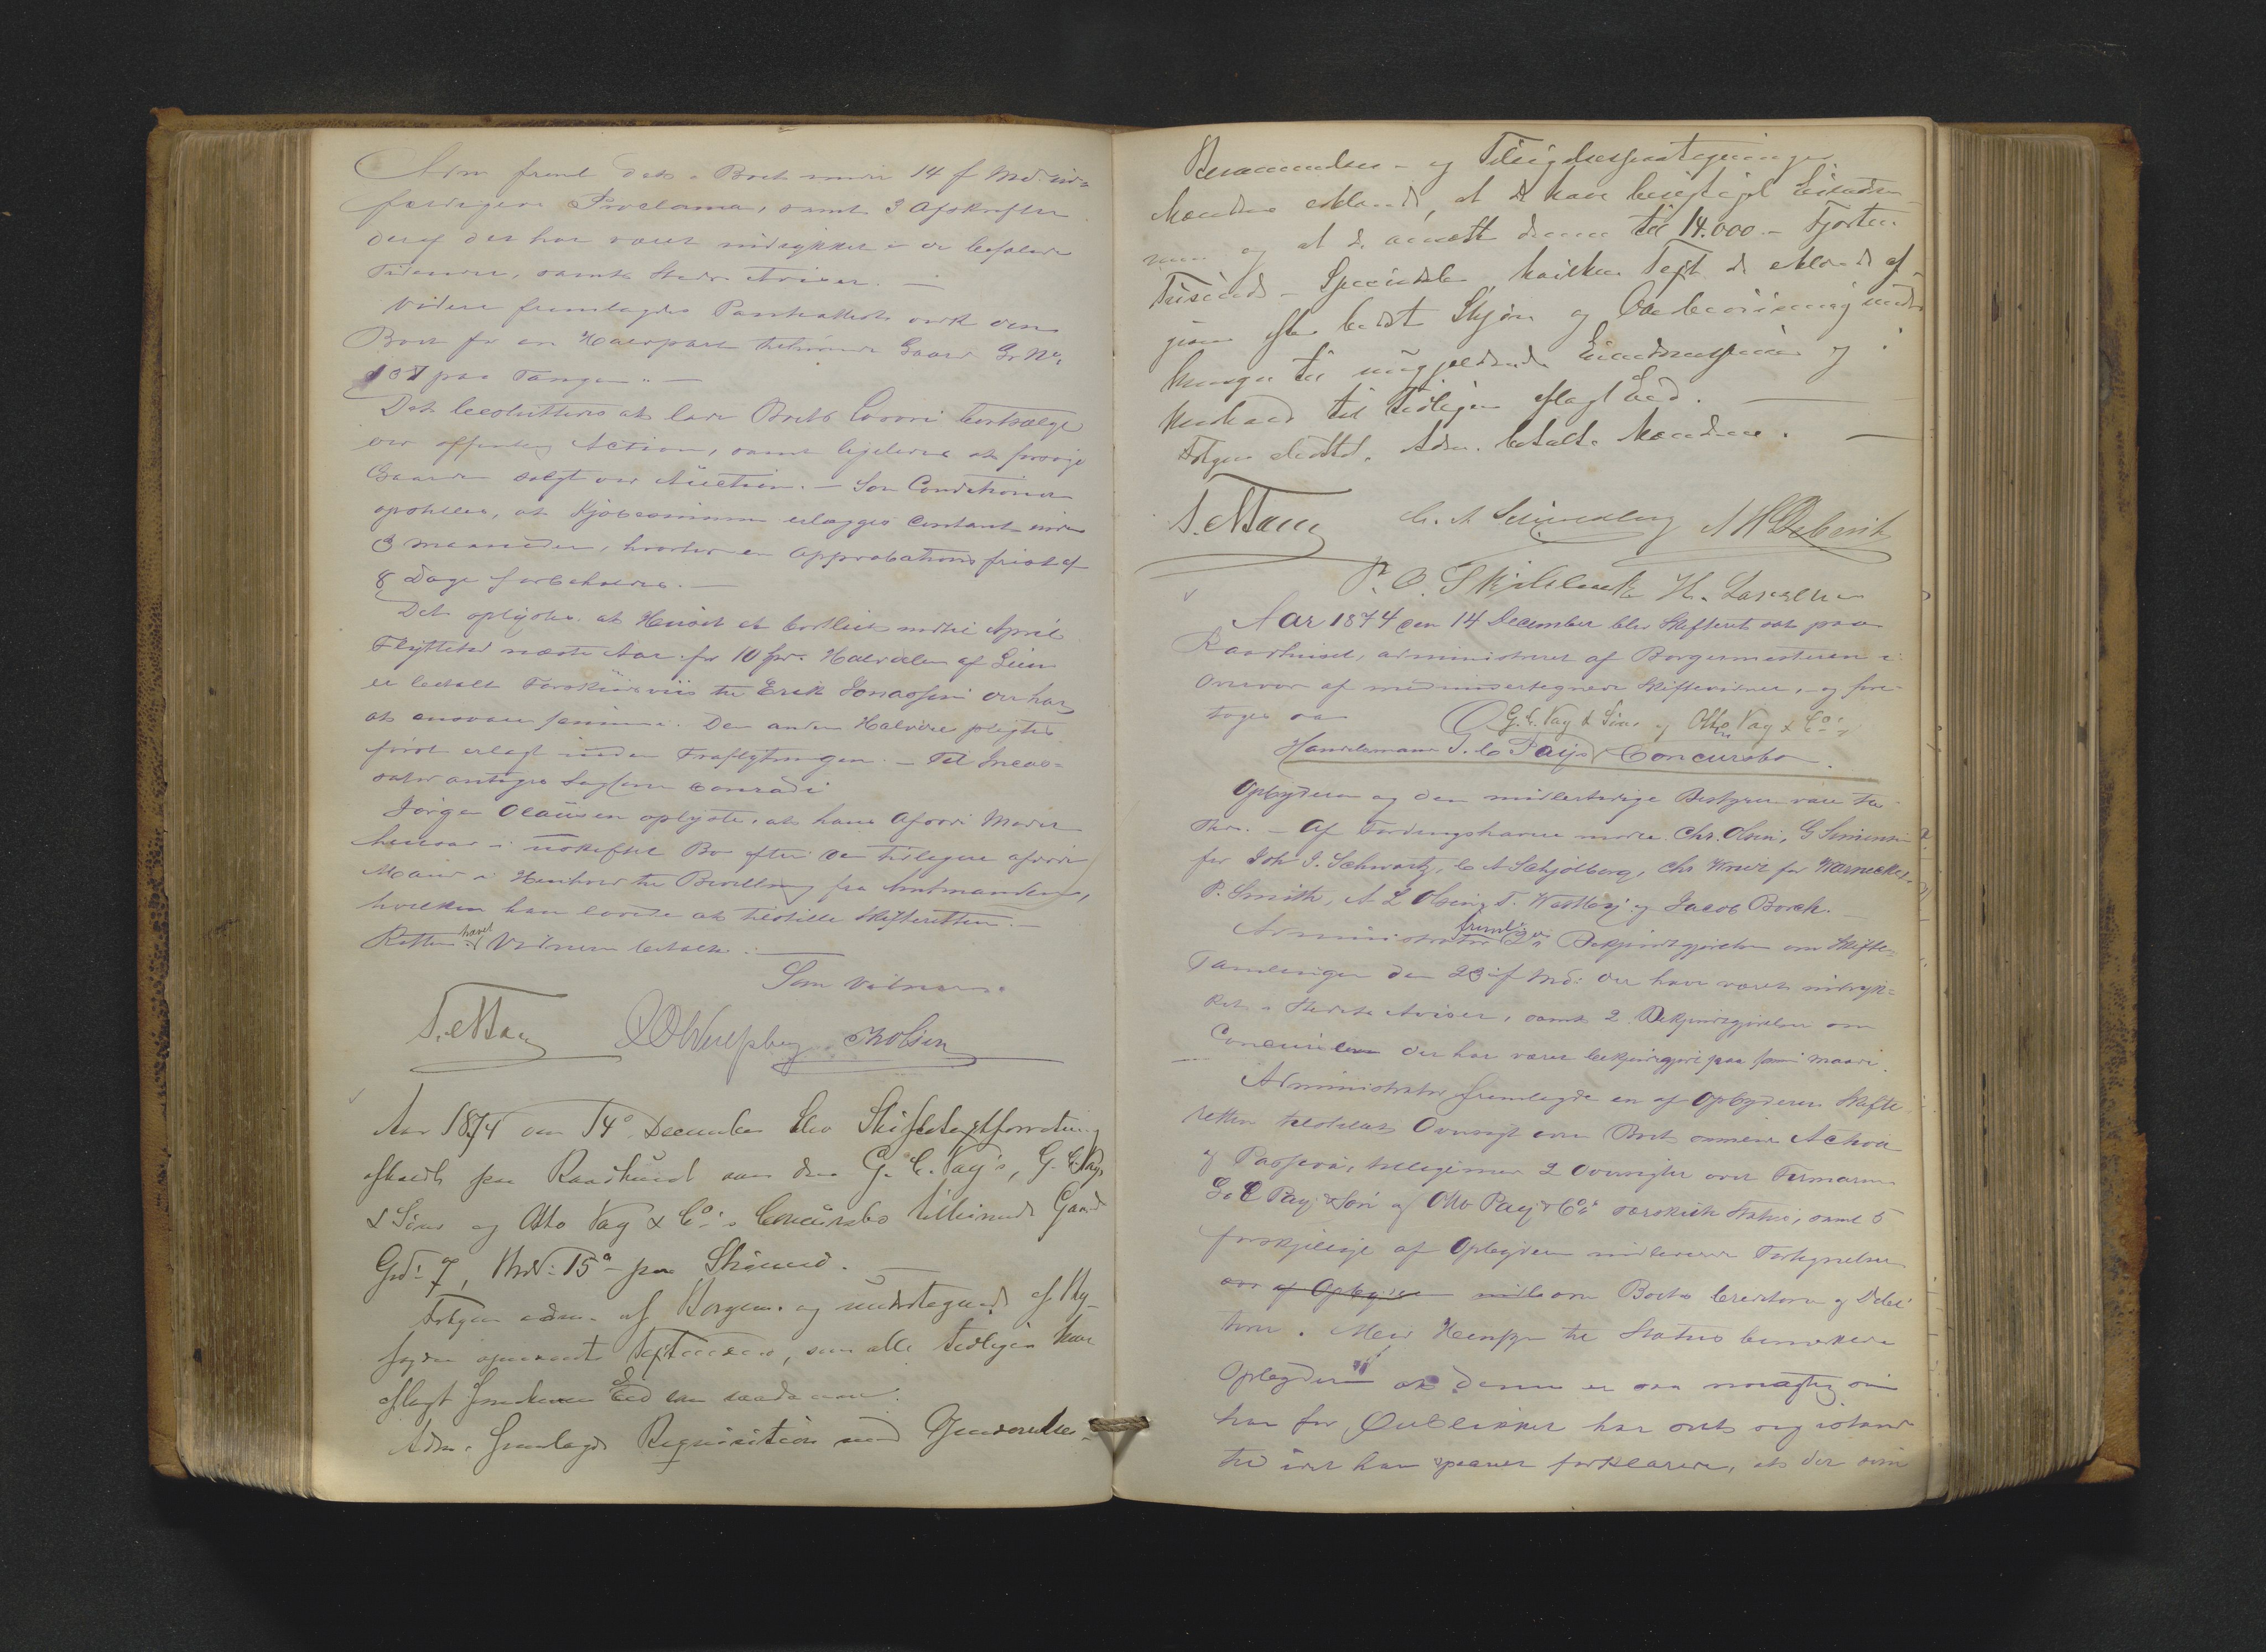 Adm freml dets i Boet under 14 f Md. ud=
færdigede Proclama, samt 3 Afskrifter
deraf der har været indrykket i de befalede
Tidender, samt Stedets Aviser. —
Videre fremlagdes Panteattest over den
Boet for en Halvpart tilhørende Gaard Gr. No.
107 paa Tangen. —
Det besluttedes at lade Boets Løsøre bortsælge
ved offentlig Auction, samt ligeledes at forsøge
Gaarden solgt ved Auction. — Som Conditioner
opstilles, at Kjøbesummen erlægges contant inden
3 Maaneder, hvorhos en Approbationsfrist af
8 Dage forbeholdes. —
Det oplystes, at Huset er bortleiet indtil April
Flyttetid næste Aar for 10 Spd. Halvdelen af Leien
er betalt Forskudsviis til Erik Jonassen der har
at ansvare samme. Den anden Halvdel pligtes
først erlagt inden Fraflytningen. — Til Incas=
sator antoges Sagfører Conradi
Jørgen Olausen oplyste, at hans Afdøde Moder
hensad i uskiftet Bo efter den tidligere afdøde
Mand i Henhold til Bevilling fra Amtmanden,
hvilken han lovede at tilstille Skifteretten. —
Retten hævet Vidnerne betalte.
Som Vidner.
Aar 1874 den 14de December blev Skiftetaxtforretning
afholdt paa Raadhuset over den G. C. Pay's, G. C. Pay
& Søns og Otto Pay & Co's Concursbo tilhørende Gaard
Grd: 7, Mrd: 15 paa Strømsø.
Retten adm. af Borgerm. og undertegnede af By-
fogden opnævnte Taxtmænd, som alle tidligere have
aflagt Eed som saadanne.
Adm. fremlagde Requisition med
Berammelses- og Tilsigelsespaategninger
Mændene erklærede, at de have besigtiget Eiendom-
men og at de ansatte denne til 14.000 — Fjorten
Tusinde — Speciedaler, hvilken Taxt de erklærede af-
given efter bedste Skjøn og Overbeviisning med
Hensyn til nugjeldende Eiendomspriser og i
Henhold til tidligere aflagt Eed. —
Retten sluttet. Adm. betalte Mændene. —
Aar 1874 den 14 December blev Skifteret sat paa
Raadhuset, administreret af Borgermesteren i
Overvær af medundertegnede Skiftevidner, og fore-
toges da
G. C. Pay & Søns og Otto Pay & Co's
Handelsmand G. C. Pay's Concursbo.
Opbyderen og den midlertidige Bestyrer vare til-
stede. — Af Fordringshaverne mødte Chr. Olsen, G Simensen
for Joh J. Schwartz, C A Schjølberg, Chr Wriedt for Warnecke,
P. Smith, A L Olsen, T. og Jacob Borch. —
Administrator fremlagde 2de Bekjendtgjørelser om Skifte-
samlingen den 23 f Md: der have været indryk=
ket i Stedets Aviser, samt 2 Bekjendtgjørelser om
Concursen der har været bekjendtgjort paa samme Maade.
Administrator fremlagde en af Opbyderen Skifte-
retten tilstillet Oversigt over Boets ommeldte Activa
og Passiva, tilligemed 2 Oversigter over Firmaerne
G. C Pay & Søn og Otto Pay & Co's særskilte Status, samt 5
forskjellige af Opbyderen indleverede Fortegnelser
over af Opbyderen over Boets Creditorer og Debi-
torer. Med Hensyn til Status bemærkede
Opbyderen at denne er saa nøiagtig som
han for Øieblikket har seet sig istand
til idet han forklarede, at der som